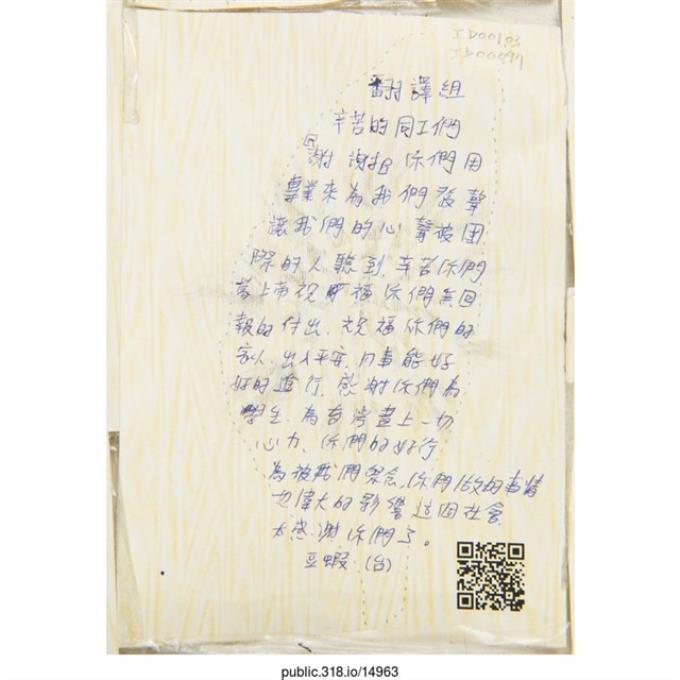 ID00103
翻譯組
辛苦的同工們
謝謝你們用
專業來為我們發聲
讓我們的心聲被国
際的人聽到,辛苦你們
上帝祝福你們無回
報的付出,祝福你們的
家人,出入平安,凡事能好
好的進行,感謝你們為
學生,為台灣盡上一切
心力,你們的好行
為被我們架念,你們做的事情
也偉大的影響這個社會
太感謝你們了。
豆蝦 (台)
public.318.io/14963